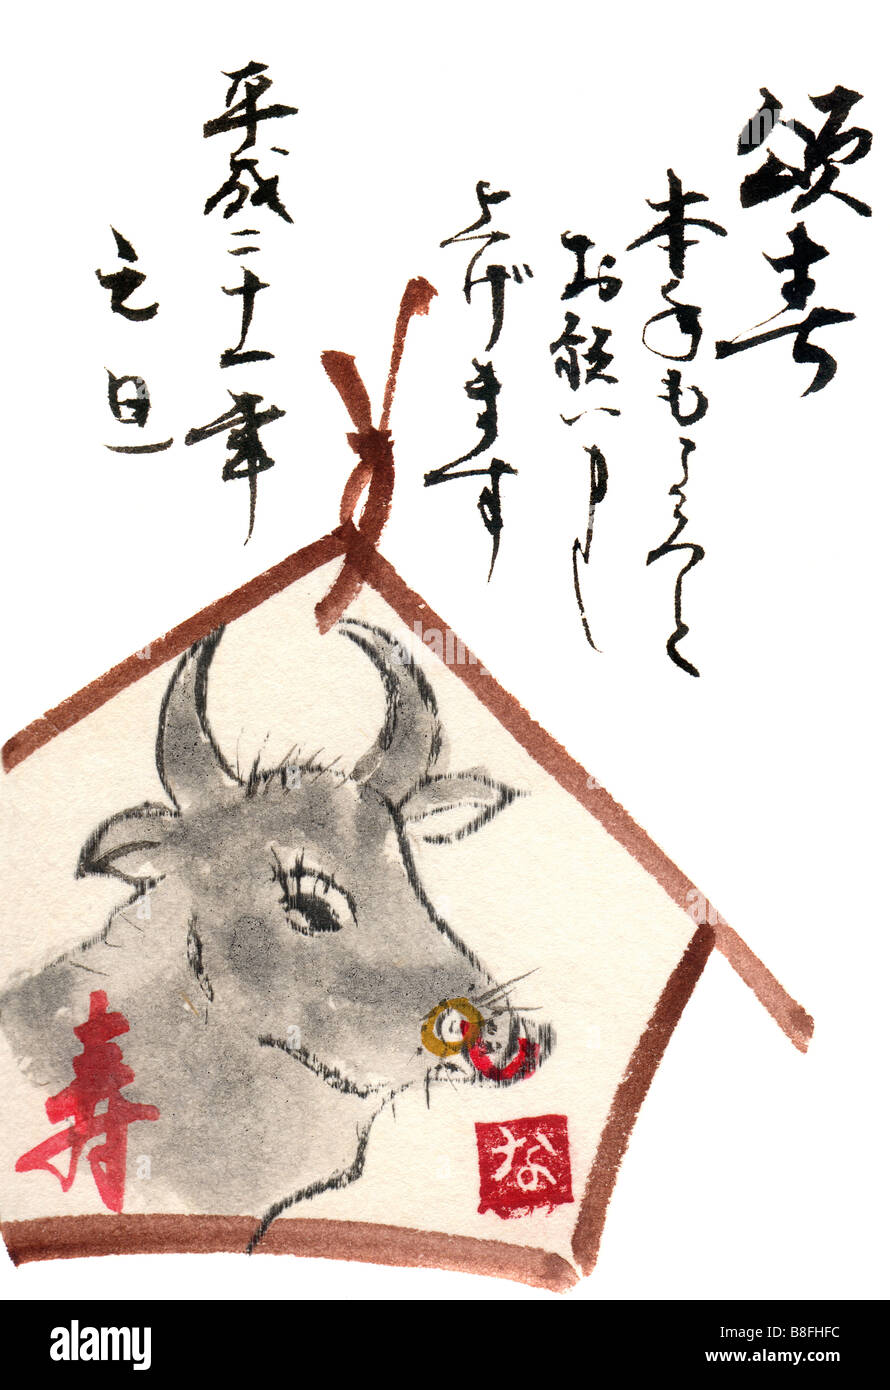 頌春
本年もよろしく
お願い申し
上げます
平成二十一年
元旦
寿
な
alamy
Image ID: B8FHFC
www.alamy.com